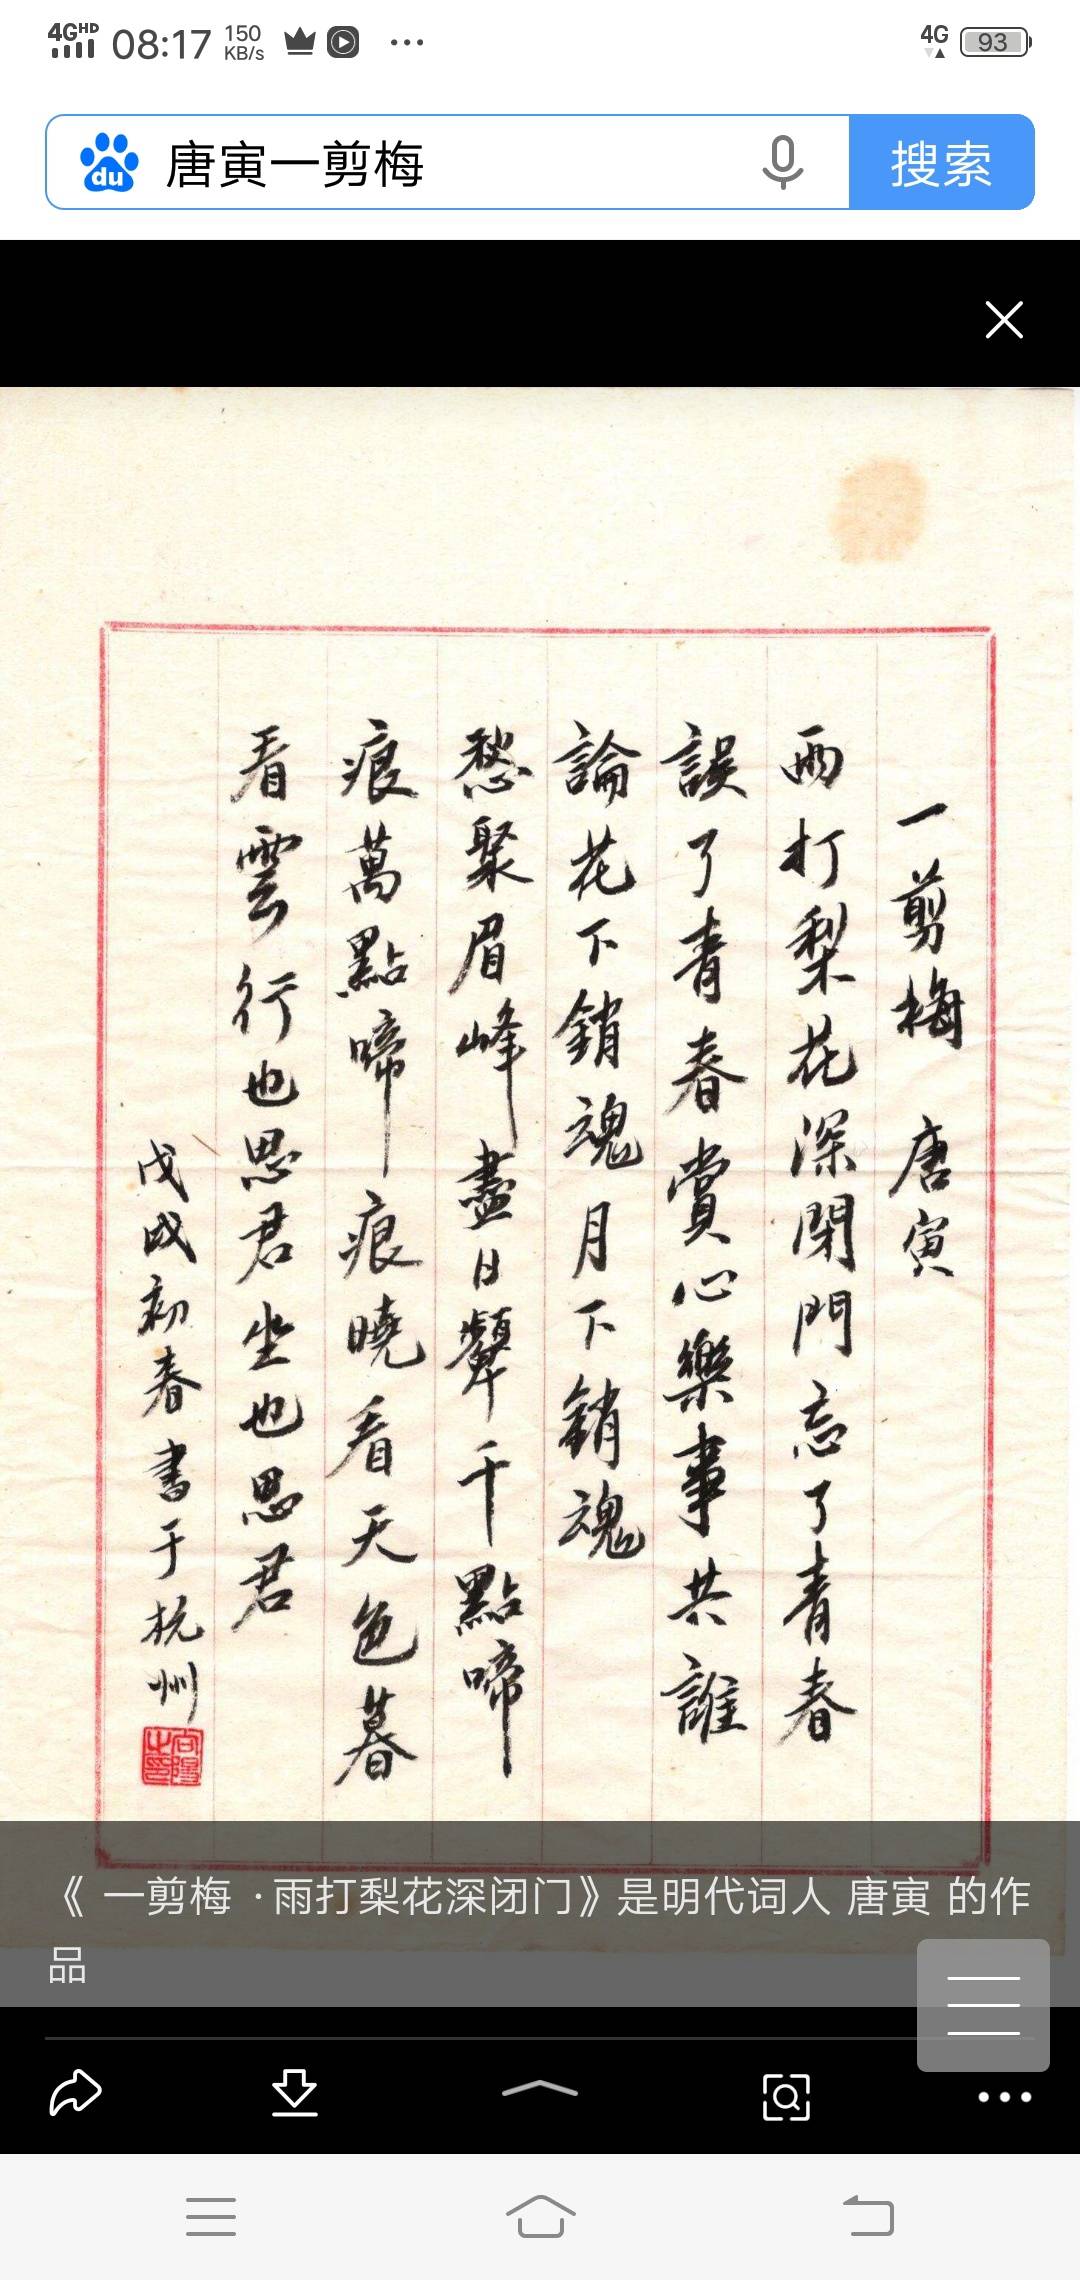 4G HD 08:17 150 KB/s 4G 93
du 唐寅一剪梅 搜索
一剪梅 唐寅
雨打梨花深閉門忘了青春
誤了青春賞心樂事共誰
論花下銷魂月下銷魂
愁聚眉峰盡日顰千點啼
痕萬點啼痕曉看天色暮
看雲行也思君坐也思君
戊戌初春書于杭州
《 一剪梅 ·雨打梨花深闭门》是明代词人 唐寅 的作
品